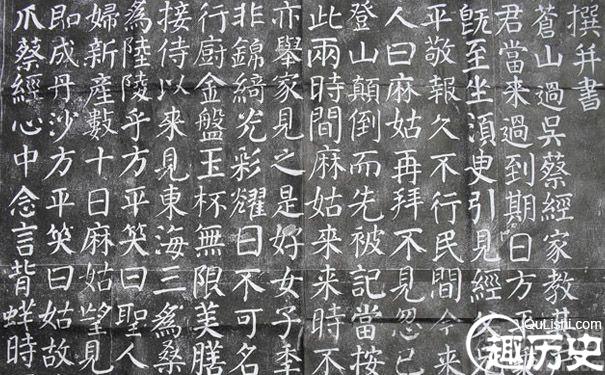 撰并書
蒼山過吳蔡經家教其
君當来過到期日方平
既至坐湏臾引見經
平敬報久不行民間今来
人曰麻姑再拜不見忽已
登山顛倒而先被記當按
此兩時間麻姑来来時不
亦舉家見之是好女子季
非錦綺光彩耀日不可名
行廚金盤玉杯無限美膳
接侍以来見東海三為桑
為陸陵乎方平笑曰聖人
婦新產數十日麻姑望見
即成丹沙方平笑曰姑故
爪蔡經心中念言背蛘時
QuLishi.com
趣历史